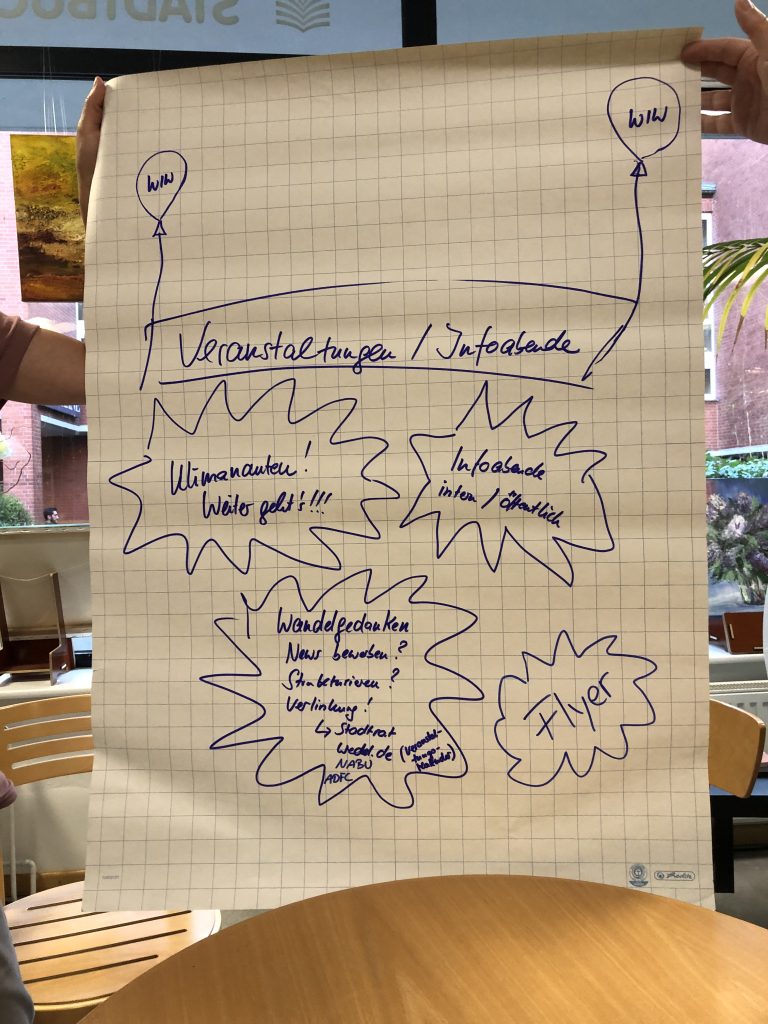 STADTBÜC
WIW
WIW
Veranstaltungen / Infoabende
Klimanauten!
Weiter geht's!!!
Infoabende
intern / öffentlich
Wandelgedanken
News bewerben?
Strukturieren?
Verlinkung!
↳ Stadtrat
Wedel.de (Veranstal-
tungs-
kalender)
NABU
ADFC
Flyer